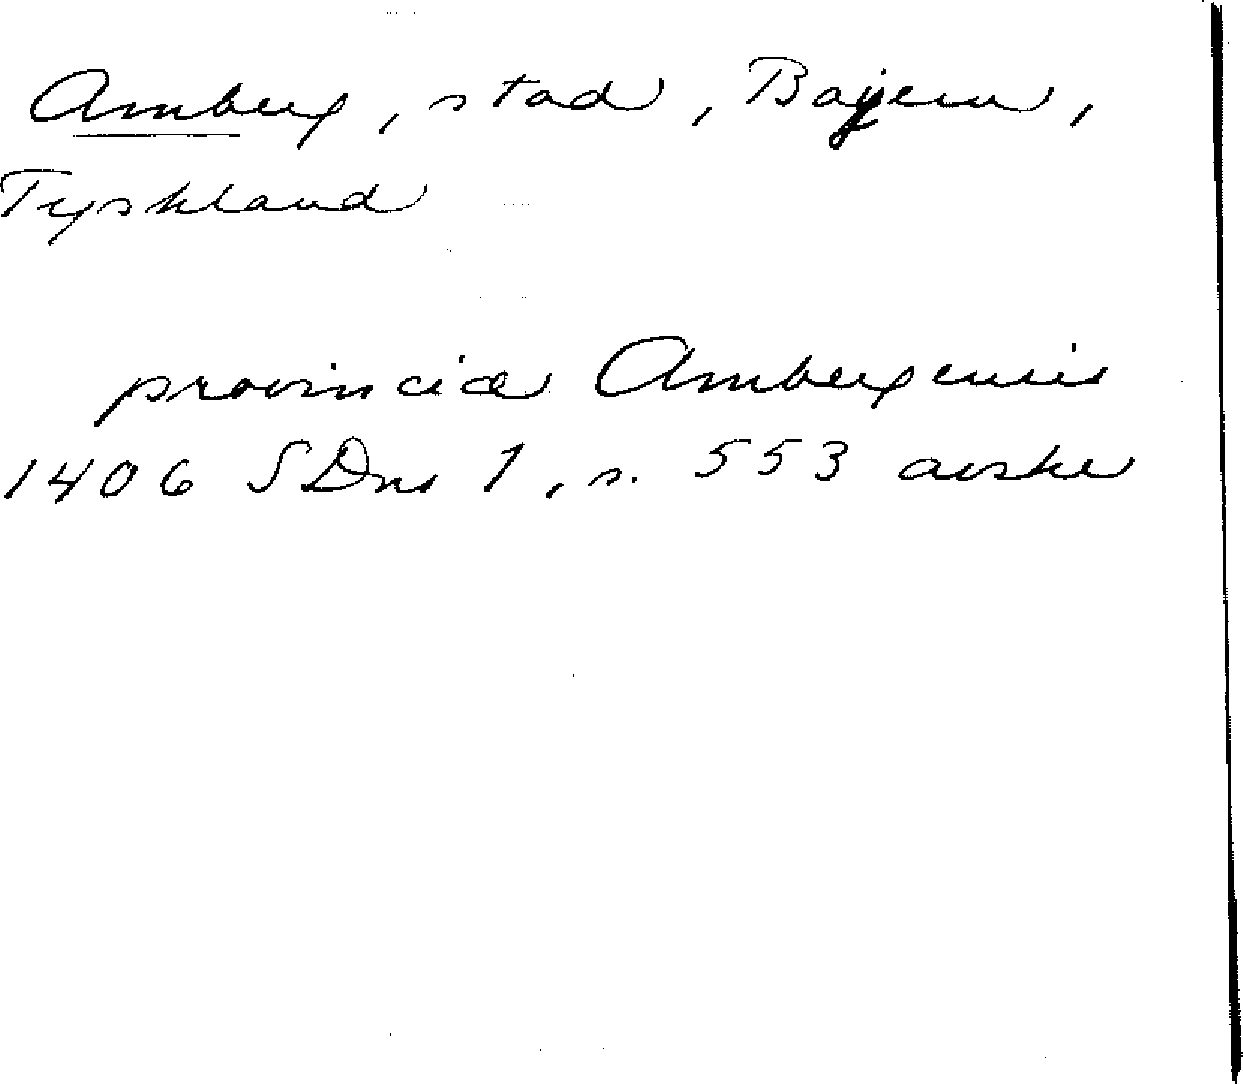 Amberg, stad, Bayern,
Tyskland
provincia Ambergensis
1406 SDns 1, s. 553 avskr